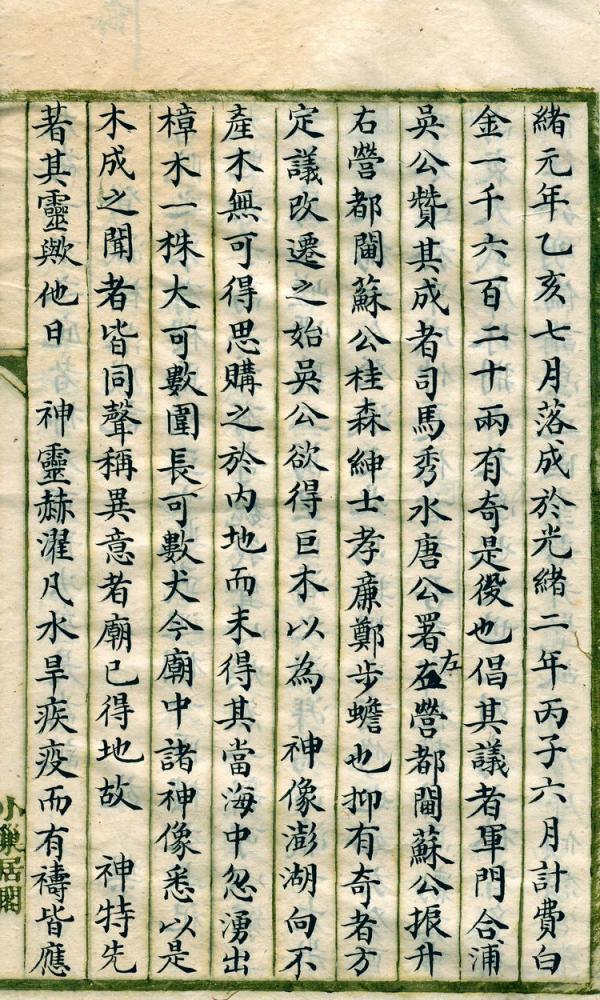 緒元年乙亥七月落成於光緒二年丙子六月計費白
金一千六百二十兩有奇是役也倡其議者軍門合浦
吳公贊其成者司馬秀水唐公署左營都閫蘇公振升
右營都閫蘇公桂森紳士孝廉鄭步蟾也抑有奇者方
定議改遷之始吳公欲得巨木以為　神像澎湖向不
產木無可得思購之於內地而未得其當海中忽湧出
樟木一株大可數圍長可數丈今廟中諸神像悉以是
木成之聞者皆同聲稱異意者廟已得地故　神特先
著其靈歟他日　神靈赫濯凡水旱疾疫而有禱皆應
小巢居閣